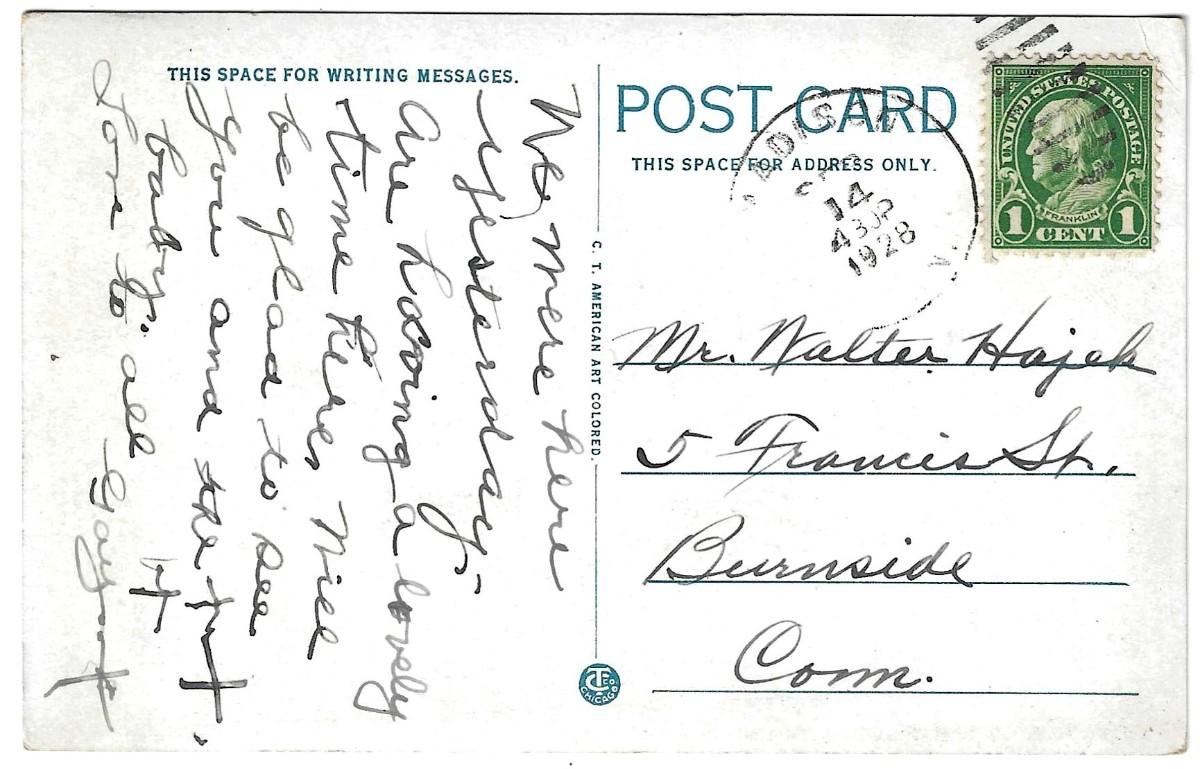 THIS SPACE FOR WRITING MESSAGES.
We were here
yesterday,
Are having a lovely
time here, Will
be glad to see
you and the
baby.
Love to all
C. T. AMERICAN ART COLORED.
C.T. CO. CHICAGO
POST CARD
THIS SPACE FOR ADDRESS ONLY.
MADISON
14
430P
1928
UNITED STATES POSTAGE
FRANKLIN
1 CENT 1
Mr. Walter Hajek
5 Francis St.
Burnside
Conn.